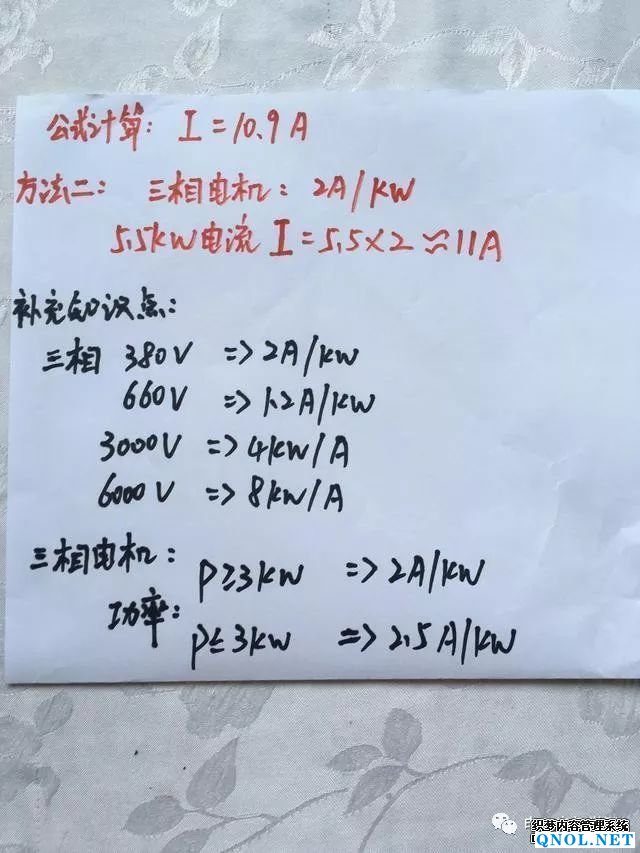 公式计算: I=10.9A
方法二: 三相电机: 2A/KW
5.5KW电流 I=5.5×2≈11A
补充知识点:
三相 380V => 2A/KW
660V => 1.2A/KW
3000V => 4KW/A
6000V => 8KW/A
三相电机: P≥3KW => 2A/KW
功率: P≤3KW => 2.5A/KW
织梦内容管理系统
QNOL.NET